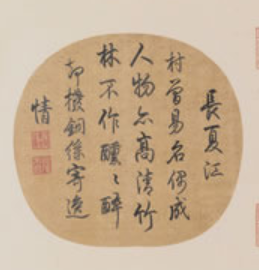 長夏江
村曾易名偶成
人物亦高清竹
林不作醺〻醉
却撥銅絲寄逸
情